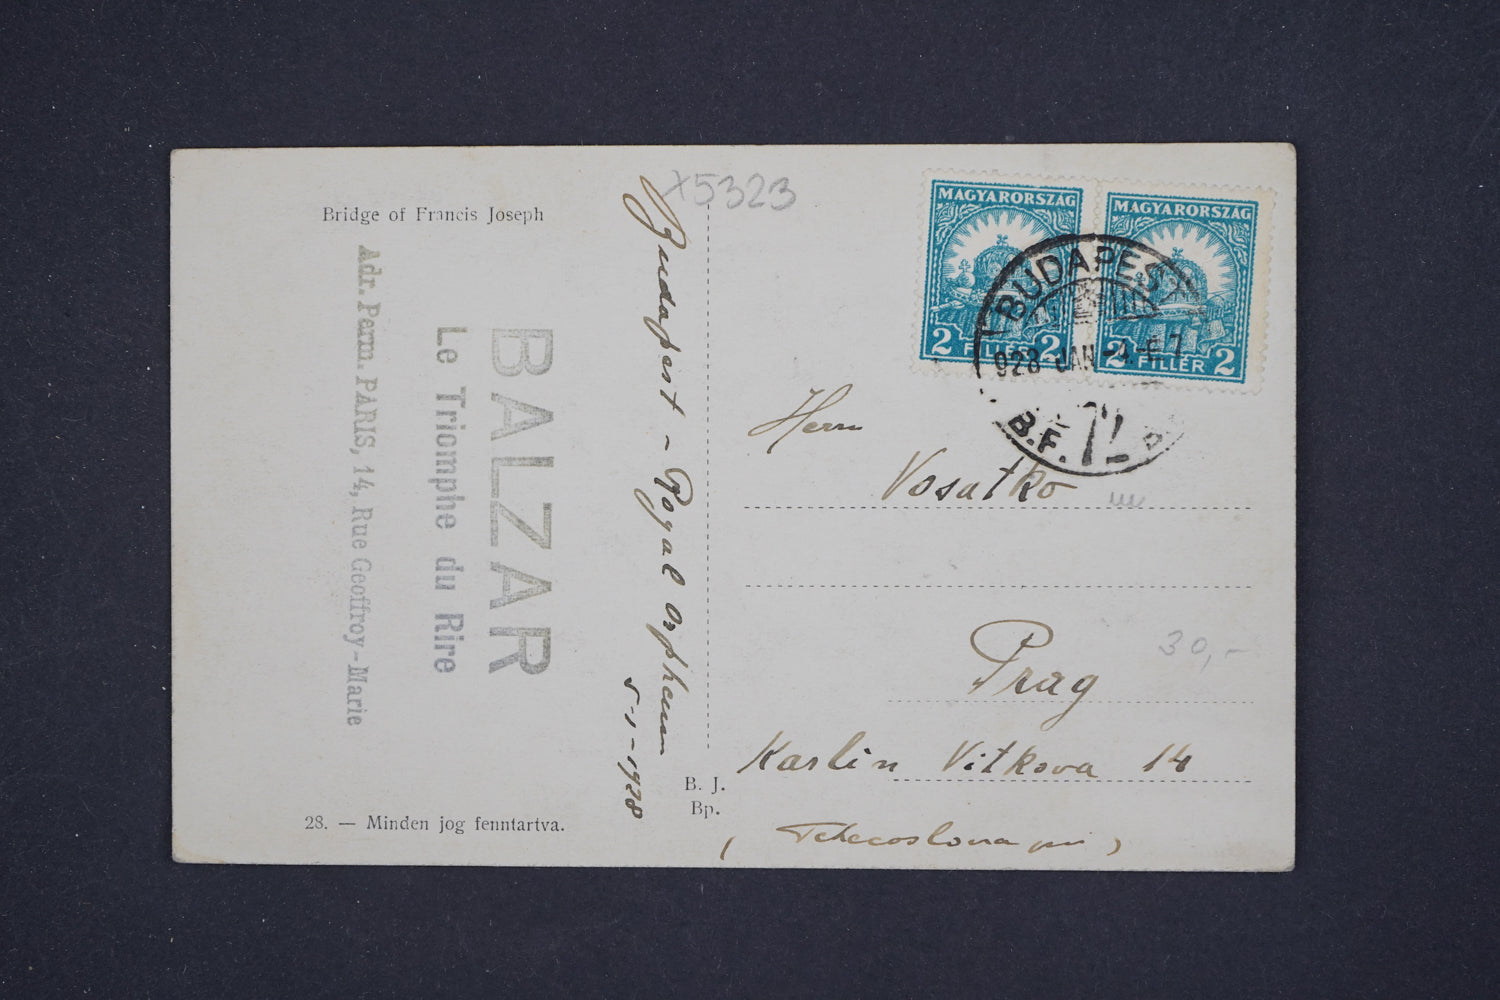 Bridge of Francis Joseph
BALZAR
Le Triomphe du Rire
Adr. Perm. PARIS, 14, Rue Geoffroy-Marie
28. — Minden jog fenntartva.
X5323
Budapest - Royal Orpheum
5-1-1928
B. J.
Bp.
MAGYARORSZÁG
2 FILLÉR 2
MAGYARORSZÁG
2 FILLÉR 2
BUDAPEST
928 JAN
B.F. 72
Herrn
Vosatko
Prag
30,-
Karlin Vitkova 14